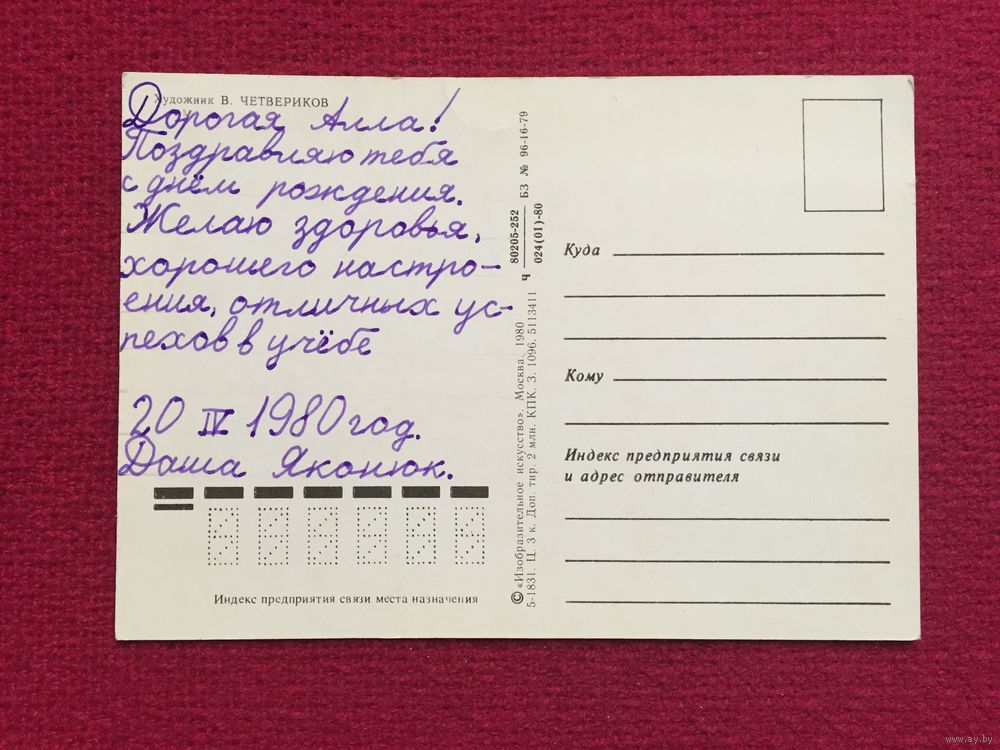 Художник В. ЧЕТВЕРИКОВ
Дорогая Алла!
Поздравляю тебя
с днём рождения.
Желаю здоровья,
хорошего настро-
ения, отличных ус-
пехов в учёбе
20 IV 1980 год.
Даша Яконюк.
Индекс предприятия связи места назначения
© «Изобразительное искусство». Москва. 1980
5-1831. Ц. 3 к. Доп. тир. 2 млн. КПК. З. 1096. 5113411
Ч 80205-252 БЗ № 96-16-79
024(01)-80
Куда
Кому
Индекс предприятия связи
и адрес отправителя
www.ay.by